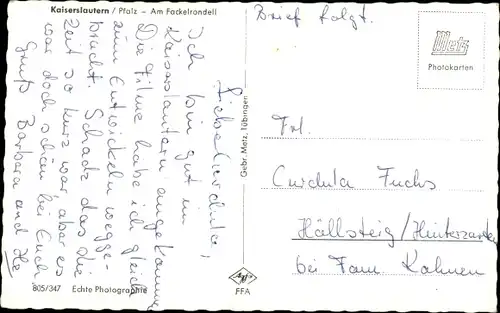 Kaiserslautern / Pfalz – Am Fackelrondell
Liebe Cordula!
Ich bin gut in
Kaiserslautern angekommen
Die Filme habe ich gleich
zum Entwickeln wegge-
bracht. Schade das die
Zeit so kurz war, aber es
war doch schön bei Euch
Gruß Barbara und
805/347 Echte Photographie
Gebr. Metz, Tübingen
Agfa
FFA
Brief folgt.
Metz
Photokarten
Frl.
Cordula Fuchs
Höllsteig/Hinterzarten
bei Fam.